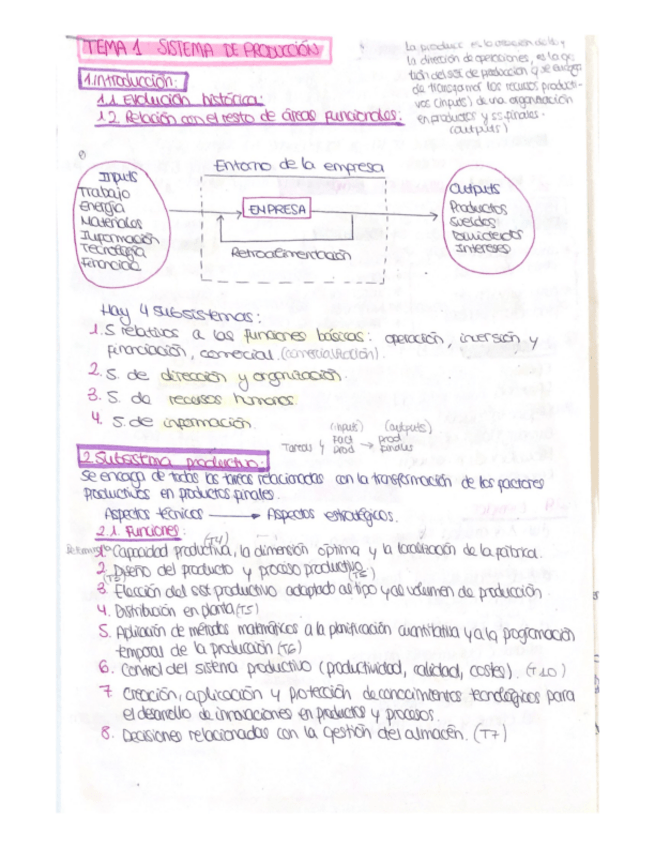 TEMA 1 SISTEMA DE PRODUCCIÓN
La producc. es la creación de b y
la dirección de operaciones, es la ges
tión del sist de producción q se encarga
de transformar los recursos producti-
vos (inputs) de una organización
en productos y ss finales.
(outputs)
1. Introducción:
1.1 Evolución histórica:
1.2. Relación con el resto de áreas funcionales:
Entorno de la empresa
Inputs
Trabajo
Energía
Materiales
Información
Tecnología
Financiac
EMPRESA
Retroalimentación
Outputs
Productos
Sueldos
Dividendos
Intereses
Hay 4 subsistemas:
1. S relativos a las funciones básicas: operación, inversión y
financiación, comercial. (comercialización).
2. S. de dirección y organización.
3. S. de recursos humanos.
4. S. de información.
(inputs) (outputs)
Tareas fact → prod
prod finales
2. Subsistema productivo:
Se encarga de todas las tareas relacionadas con la transformación de los factores
productivos en productos finales.
Aspectos técnicos → Aspectos estratégicos.
2.1. Funciones:
1. Capacidad productiva, (T4) la dimensión óptima y la localización de la fábrica.
2. Diseño del producto y proceso productivo. (T5)
(T3)
3. Elección del sist productivo adaptado al tipo y al volumen de producción.
4. Distribución en planta (T5)
5. Aplicación de métodos matemáticos a la planificación cuantitativa y a la programación
temporal de la producción (T6)
6. Control del sistema productivo (productividad, calidad, costes). (T10)
7. Creación, aplicación y protección de conocimientos tecnológicos para
el desarrollo de innovaciones en productos y procesos.
8. Decisiones relacionadas con la gestión del almacén. (T7)